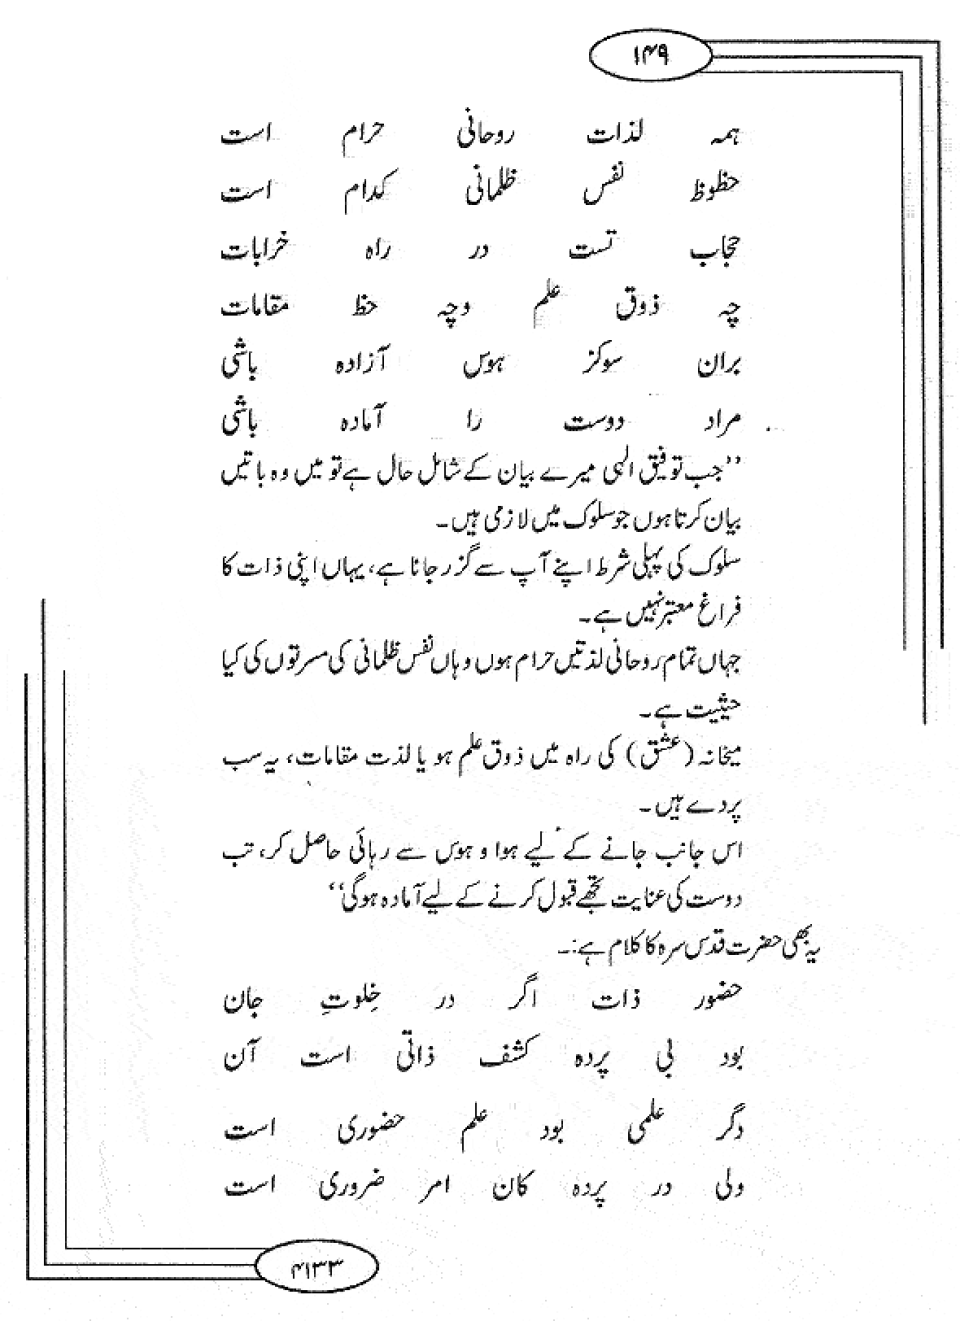 ۱۴۹
ہمہ لذات روحانی حرام است
حظوظ نفس ظلمانی کدام است
حجاب تست در راہ خرابات
چہ ذوق علم وچہ حظ مقامات
بران سوکز ہوس آزادہ باشی
مراد دوست را آمادہ باشی
’’جب توفیق الٰہی میرے بیان کے شامل حال ہے تو میں وہ باتیں
بیان کرتا ہوں جو سلوک میں لازمی ہیں۔
سلوک کی پہلی شرط اپنے آپ سے گزر جانا ہے، یہاں اپنی ذات کا
فراغ معتبر نہیں ہے۔
جہاں تمام روحانی لذتیں حرام ہوں وہاں نفس ظلمانی کی مسرتوں کی کیا
حیثیت ہے۔
میخانہ (عشق) کی راہ میں ذوق علم ہو یا لذت مقامات، یہ سب
پردے ہیں۔
اس جانب جانے کے لیے ہوا و ہوس سے رہائی حاصل کر، تب
دوست کی عنایت تجھے قبول کرنے کے لیے آمادہ ہوگی‘‘
یہ بھی حضرت قدس سرہ کا کلام ہے:۔
حضور ذات اگر در خِلوتِ جان
بود بی پردہ کشف ذاتی است آن
دگر علمی بود علم حضوری است
ولی در پردہ کان امر ضروری است
۴۱۳۳